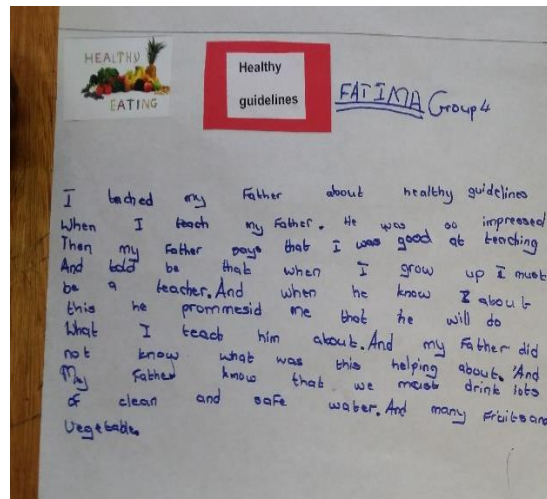 HEALTHY
EATING
Healthy
guidelines
FATIMA Group 4
I tached my Father about healthy guidelines
When I teach my Father. He was so impressed
Then my Father says that I was good at teaching
And told be that when I grow up I must
be a teacher. And when he know I about
this he prommesid me that he will do
What I teach him about. And my Father did
not know what was this helping about. And
My Father know that we must drink lots
of clean and safe water. And many Fruits and
Vegetable